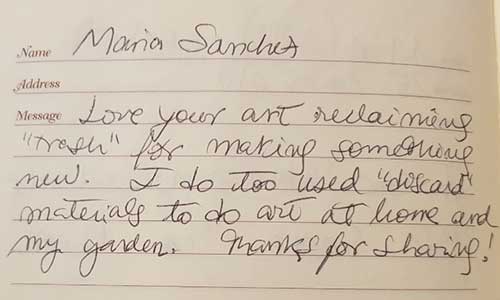 Name Maria Sanchez
Address
Message Love your art reclaiming
"trash" for making something
new. I do too used "discard"
materials to do art at home and
my garden. Thanks for sharing!